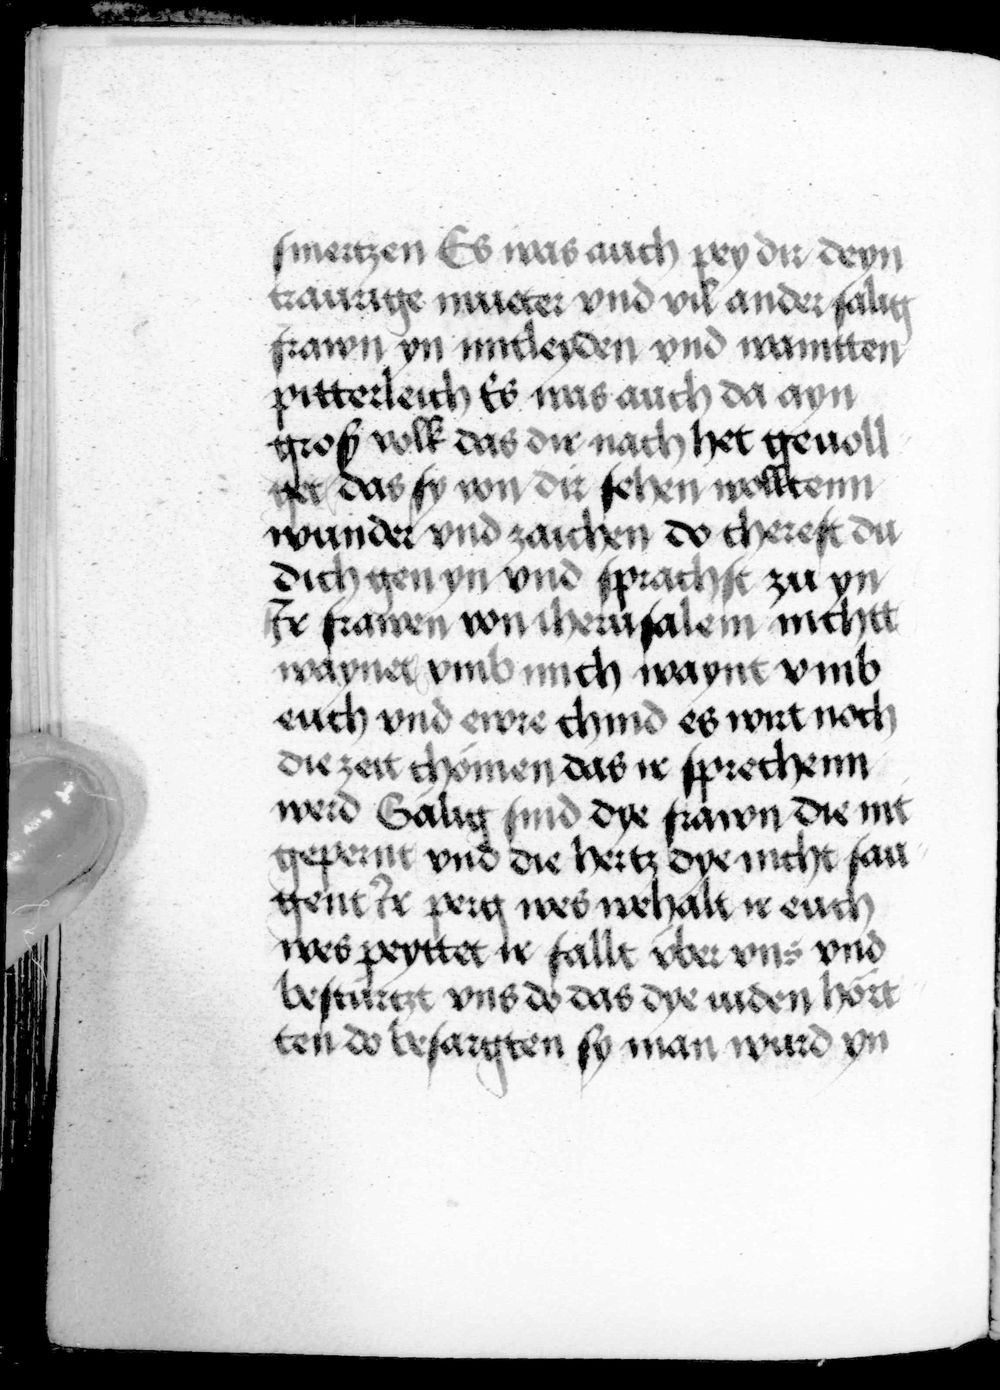 smertzen Es was auch pey dir deyn
traurige mueter vnd vil ander salig
frawn yn mitleyden vnd wamtten
pitterleich Es was auch da ayn
groß volk das dir nach het geuoll
get das sy von dir sehen wolltenn
wunder vnd zaichen do cherest du
dich gen yn vnd sprachst zu yn
Ir frawen von iherusalem nichtt
waynet vmb mich waynt vmb
euch vnd ewre chind es wirt noch
die zeit chömen das ir sprechenn
werd Salig sind dye frawn die nit
gepernt vnd die hertz dye nicht sau
gent Ir perg wes wehalt ir euch
wes peyttet ir fallt über vns vnd
bestürtzt vns do das dye iuden hört
ten do besargten sy man wurd yn